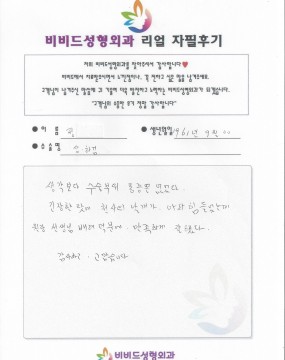 비비드성형외과 리얼 자필후기
저희 비비드성형외과를 찾아주셔서 감사합니다
비비드에서 치료받으시면서 느끼셨거나, 꼭 전하고 싶은 말을 남겨주세요.
고객님이 남겨주신 말씀에 더 기울여 더욱 발전하고 노력하는 비비드성형외과가 되겠습니다.
"고객님의 소중한 후기 정말 감사합니다"
이 름 생년월일 1961년 9월 00
수술명 상하검
생각보다 수술부위 통증은 없었다.
긴장한 탓에
원장 선생님 배려 덕분에 만족하게 끝났다.
감사 고맙습니다
비비드성형외과